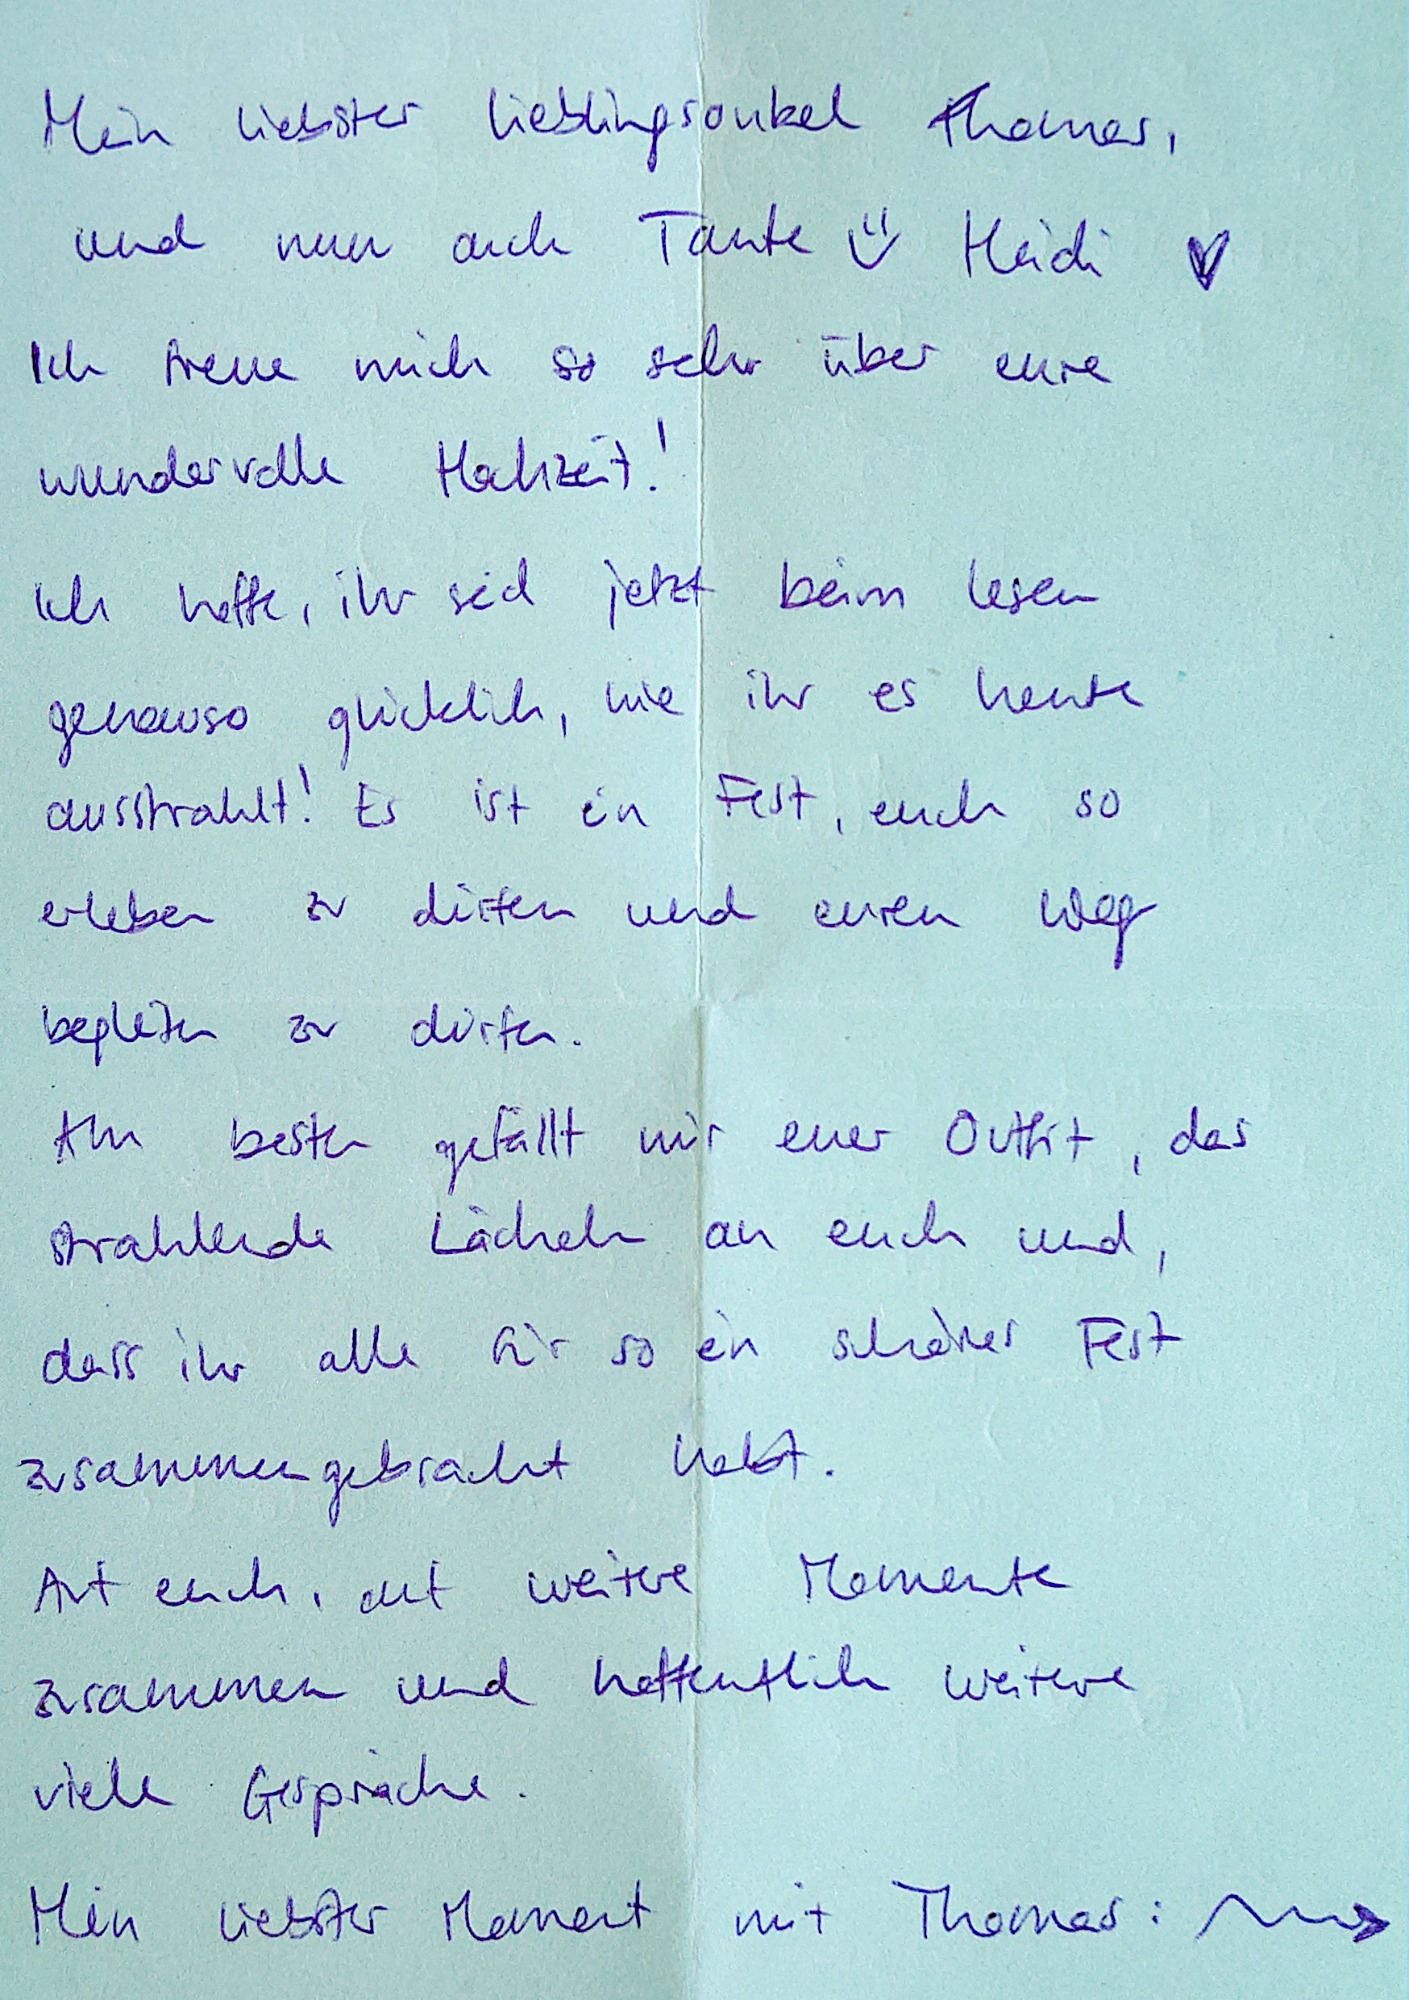 Mein liebster Lieblingsonkel Thomas,
und nun auch Tante ☺ Heidi ♥
Ich freue mich so sehr über eure
wundervolle Hochzeit!
Ich hoffe, ihr seid jetzt beim lesen
genauso glücklich, wie ihr es heute
ausstrahlt! Es ist ein Fest, euch so
erleben zu dürfen und euren Weg
begleiten zu dürfen.
Am besten gefällt mir euer Outfit, das
strahlende Lächeln an euch und,
dass ihr alle für so ein schönes Fest
zusammengebracht habt.
Auf euch, auf weitere Momente
zusammen und hoffentlich weitere
viele Gespräche.
Mein liebster Moment mit Thomas: →